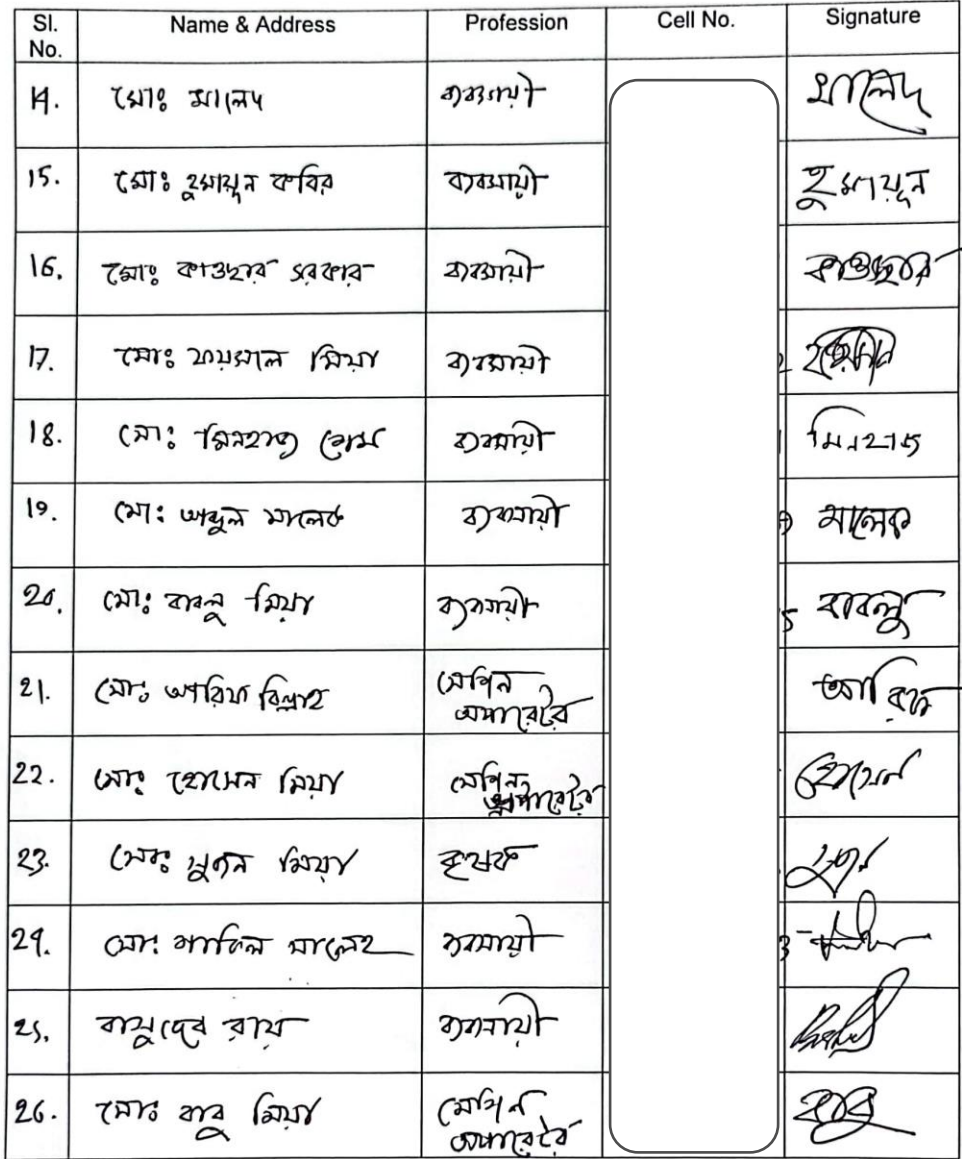 Sl. No. Name & Address Profession Cell No. Signature
14. মোঃ খালেদ ব্যবসায়ী খালেদ
15. মোঃ হুমায়ুন কবির ব্যবসায়ী হুমায়ুন
16. মোঃ কাওছার সরকার ব্যবসায়ী কাওছার
17. মোঃ ফয়সাল মিয়া ব্যবসায়ী
18. মোঃ মিনহাজ ব্যবসায়ী মিনহাজ
19. মোঃ আব্দুল মালেক ব্যবসায়ী মালেক
20. মোঃ বাবলু মিয়া ব্যবসায়ী 5 বাবলু
21. মোঃ আরিফ বিল্লাহ মেশিন অপারেটর আরিফ
22. মোঃ হোসেন মিয়া মেশিন অপারেটর হোসেন
23. মোঃ সুজন মিয়া কৃষক
24. মোঃ শাকিল সালেহ ব্যবসায়ী 3
25. বাসুদেব রায় ব্যবসায়ী
26. মোঃ বাবু মিয়া মেশিন অপারেটর বাবু